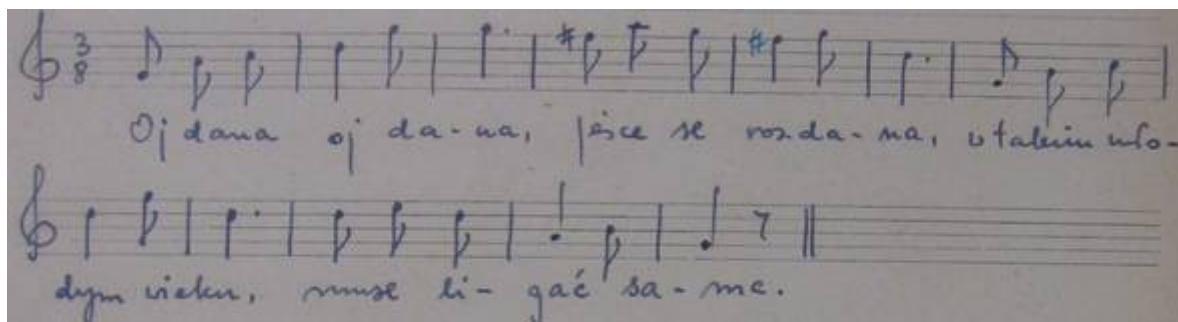 3
8
Oj dana oj da-na, jesce se roz da-na, v takim mło-
dym wieku, muse li-gać sa-me.